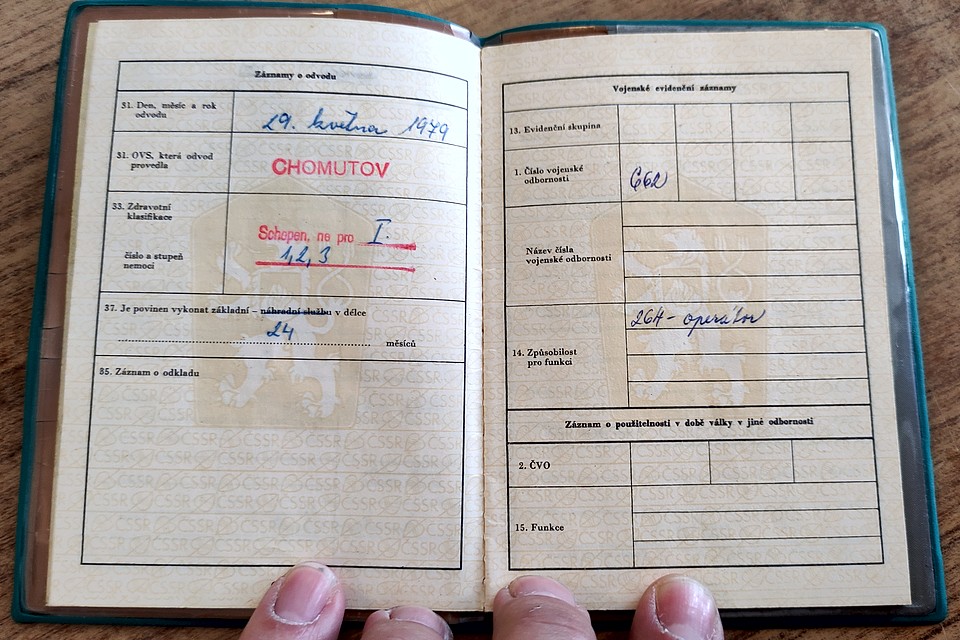 Záznamy o odvodu
31. Den, měsíc a rok
odvodu
29. května 1979
31. OVS, která odvod
provedla
CHOMUTOV
33. Zdravotní
klasifikace
Schopen, ne pro I.
číslo a stupeň
nemoci
1,2,3
37. Je povinen vykonat základní – náhradní službu v délce
24
měsíců
35. Záznam o odkladu
Vojenské evidenční záznamy
13. Evidenční skupina
1. Číslo vojenské
odbornosti
662
Název čísla
vojenské odbornosti
264 - operátor
14. Způsobilost
pro funkci
Záznam o použitelnosti v době války v jiné odbornosti
2. ČVO
15. Funkce